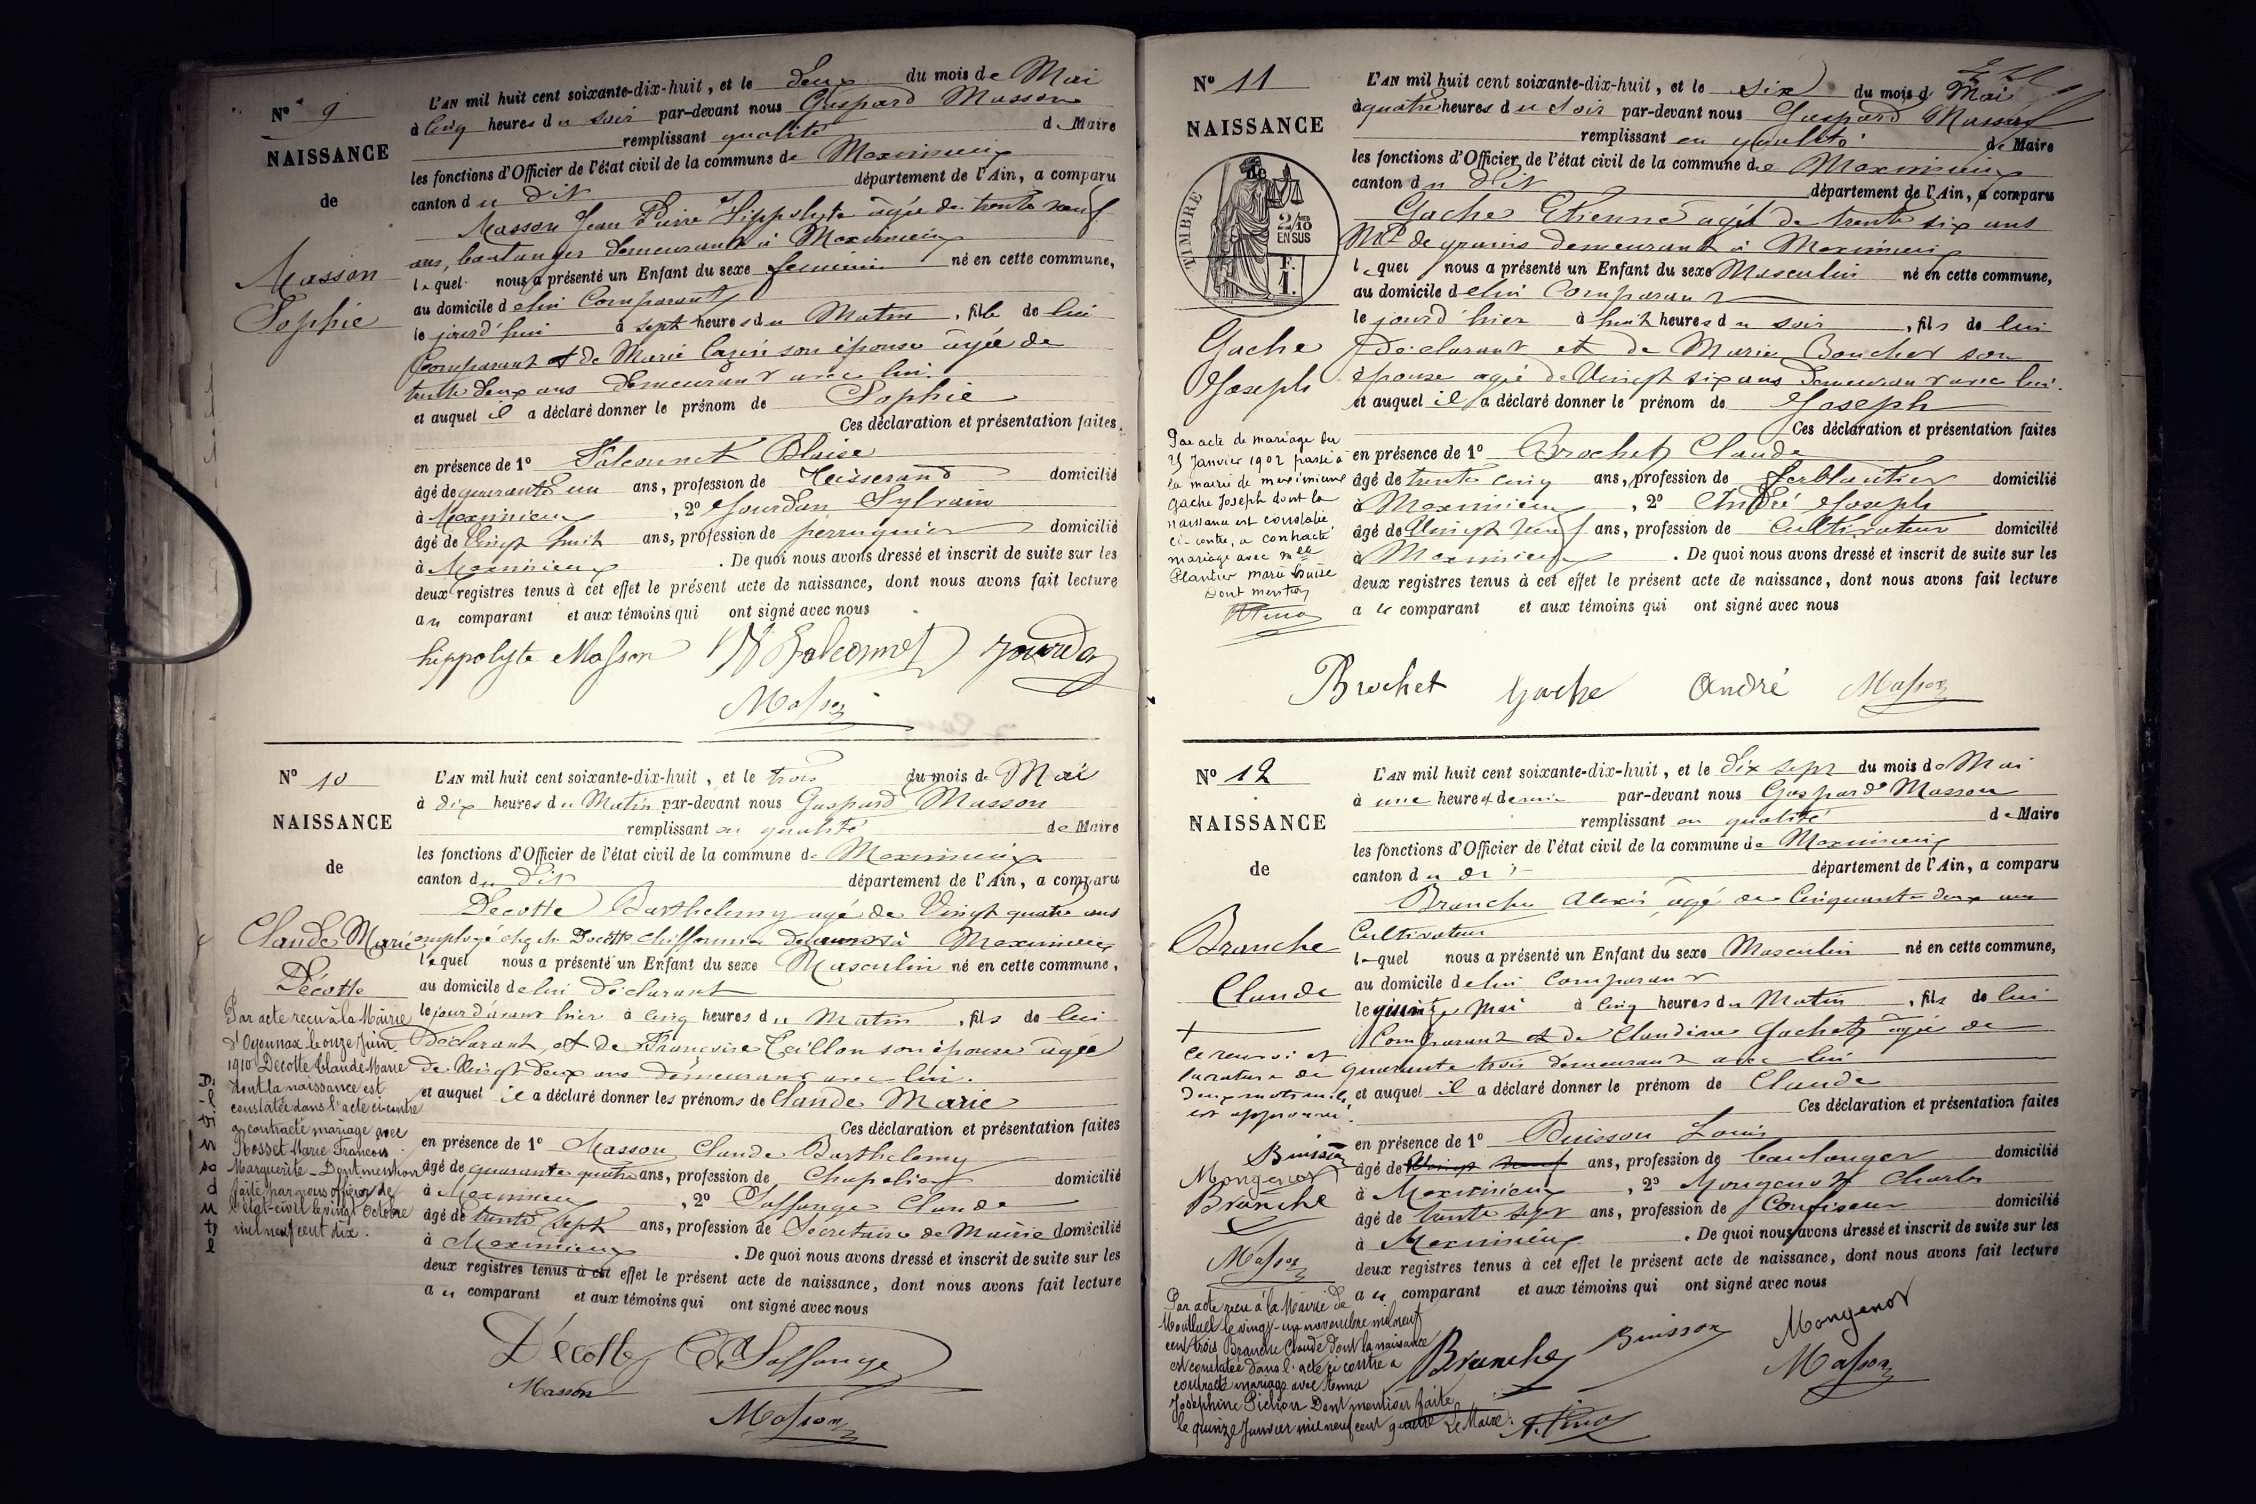 N° 9
NAISSANCE
de
Masson
Sophie
L'AN mil huit cent soixante-dix-huit, et le deux du mois de Mai
à cinq heures du soir par-devant nous Gaspard Masson
remplissant qualité de Maire
les fonctions d'Officier de l'état civil de la commune de Meximieux
canton du dit département de l'Ain, a comparu
Masson Jean Pierre Hippolyte âgé de trente neuf
ans, boulanger demeurant à Meximieux
lequel nous a présenté un Enfant du sexe feminin né en cette commune,
au domicile de lui Comparant
le jourd'hui à sept heures du Matin, fille de lui
Comparant et de Marie son épouse âgée de
trente deux ans demeurant avec lui.
et auquel il a déclaré donner le prénom de Sophie
Ces déclaration et présentation faites
en présence de 1° Falconnet Blaise
âgé de quarante un ans, profession de Tisserand domicilié
à Meximieux, 2° Jourdan Sylvain
âgé de Vingt huit ans, profession de perruquier domicilié
à Meximieux. De quoi nous avons dressé et inscrit de suite sur les
deux registres tenus à cet effet le présent acte de naissance, dont nous avons fait lecture
au comparant et aux témoins qui ont signé avec nous
hippolyte Masson Falconnet Jourdan
Masson
N° 10
NAISSANCE
de
Claude Marie
Décotte
L'AN mil huit cent soixante-dix-huit, et le trois du mois de Mai
à dix heures du Matin par-devant nous Gaspard Masson
remplissant en qualité de Maire
les fonctions d'Officier de l'état civil de la commune de Meximieux
canton du dit département de l'Ain, a comparu
Decotte Barthelemy agé de Vingt quatre ans
employé chez Decotte chiffonnier demeurant à Meximieux
lequel nous a présenté un Enfant du sexe Masculin né en cette commune,
au domicile de lui Déclarant
le jour d'avant hier à cinq heures du Matin, fils de lui
Déclarant, et de Françoise Teillon son épouse âgée
de Vingt deux ans demeurant avec lui.
et auquel il a déclaré donner les prénoms de Claude Marie
Ces déclaration et présentation faites
en présence de 1° Masson Claude Barthelemy
âgé de quarante quatre ans, profession de Chapelier domicilié
à Meximieux, 2° Laffange Claude
âgé de trente sept ans, profession de Secrétaire de Mairie domicilié
à Meximieux. De quoi nous avons dressé et inscrit de suite sur les
deux registres tenus à cet effet le présent acte de naissance, dont nous avons fait lecture
au comparant et aux témoins qui ont signé avec nous
Par acte recu à la Mairie
d'Oyonnax le onze Juin
1910 Decotte Claude Marie
dont la naissance est
constatée dans l'acte ci-contre
a contracté mariage avec
Rosset Marie François
Marguerite - Dont mention
faite par nous officier de
l'état-civil le vingt Octobre
mil neuf cent dix.
Décotte Laffange
Masson
Masson
N° 11
NAISSANCE
de
TIMBRE
2/10
EN SUS
Gache
Joseph
L'AN mil huit cent soixante-dix-huit, et le six du mois de Mai
à quatre heures du Soir par-devant nous Gaspard Masson
remplissant en qualité de Maire
les fonctions d'Officier de l'état civil de la commune de Meximieux
canton du dit département de l'Ain, a comparu
Gache Etienne agé de trente six ans
Md de grains demeurant à Meximieux
lequel nous a présenté un Enfant du sexe Masculin né en cette commune,
au domicile de lui Comparant
le jourd'hier à huit heures du soir, fils de lui
Déclarant et de Marie Boucher son
épouse agée de Vingt six ans demeurant avec lui.
et auquel il a déclaré donner le prénom de Joseph
Ces déclaration et présentation faites
en présence de 1° Brochet Claude
âgé de trente cinq ans, profession de Ferblantier domicilié
à Meximieux, 2° André Joseph
âgé de Vingt neuf ans, profession de Cultivateur domicilié
à Meximieux. De quoi nous avons dressé et inscrit de suite sur les
deux registres tenus à cet effet le présent acte de naissance, dont nous avons fait lecture
a le comparant et aux témoins qui ont signé avec nous
Par acte de mariage du
25 Janvier 1902 passé à
la mairie de meximieux
Gache Joseph dont la
naissance est constatée
ci-contre, a contracté
mariage avec Melle
Plantier marie Louise
Dont mention
Brochet Gache André Masson
N° 12
NAISSANCE
de
Branche
Claude
L'AN mil huit cent soixante-dix-huit, et le dix sept du mois de Mai
à une heure et demie par-devant nous Gaspard Masson
remplissant en qualité de Maire
les fonctions d'Officier de l'état civil de la commune de Meximieux
canton du dit département de l'Ain, a comparu
Branche Alexis, agé de Cinquante deux ans
Cultivateur
lequel nous a présenté un Enfant du sexe Masculin né en cette commune,
au domicile de lui Comparant
le quinze Mai à cinq heures du Matin, fils de lui
Comparant et de Claudine Gachet agée de
quarante trois demeurant avec lui
et auquel il a déclaré donner le prénom de Claude
Ces déclaration et présentation faites
en présence de 1° Buisson Louis
âgé de Vingt neuf ans, profession de boulanger domicilié
à Meximieux, 2° Mongenot Charles
âgé de trente sept ans, profession de Confiseur domicilié
à Meximieux. De quoi nous avons dressé et inscrit de suite sur les
deux registres tenus à cet effet le présent acte de naissance, dont nous avons fait lecture
au comparant et aux témoins qui ont signé avec nous
ce renvoi et
la rature de
deux mots nuls
est approuvé.
Buisson
Mongenot
Branche
Masson
Par acte reçu à la Mairie de
Montluel le vingt-un novembre mil neuf
cent trois Branche Claude dont la naissance
est constatée dans l'acte ci contre a
contracté mariage avec Anna
Joséphine Pichon Dont mention faite
le quinze Janvier mil neuf cent quatre Le Maire.
Branche Buisson Mongenot
Masson